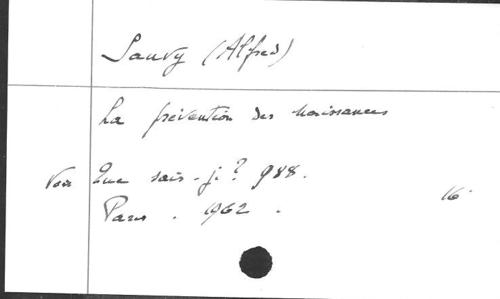 Sauvy (Alfred)
La prévention des naissances
Voir Que sais-je? 988.
Paris. 1962. 16